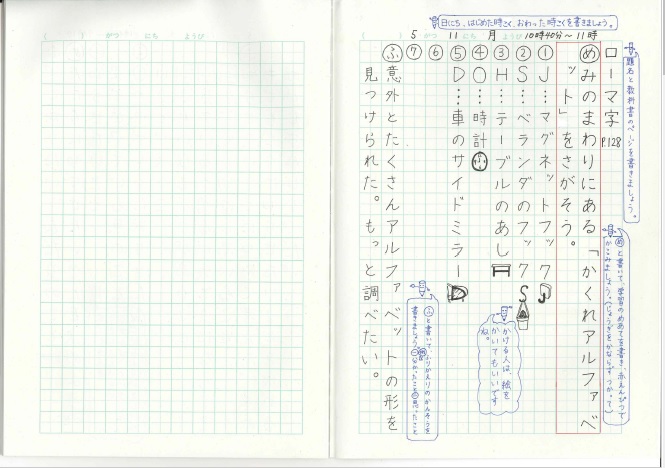 日にち、はじめた時こく、おわった時こくを書きましょう。
5 11 月 10時40分～11時
がつ にち ようび
題名と教科書のページを書きましょう。
ローマ字 P.128
めと書いて、学習のめあてを書き、赤えんぴつで
かこみましょう。(じょうぎをかならずつかって)
めみのまわりにある「かくれアルファベ
ット」をさがそう。
①J…マグネットフック
②S…ベランダのフック
③H…テーブルのあし
かける人は、絵を
かいてもいいです
ね。
④O…時計
⑤D…車のサイドミラー
⑥
⑦
ふと書いて、ふりかえりのかんそうを
書きましょう。
ふ意外とたくさんアルファベットの形を
見つけられた。もっと調べたい。
がつ にち ようび